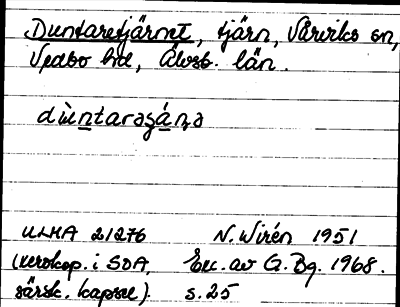 Duntaretjärnet, tjärn, Vårviks sn,
Vedbo hd, Älvsb. län.
dùntaraʒánə
ULMA 21276 N. Wirén 1951
(xerokop. i SOA, Exc. av G. Bg. 1968.
särsk. kapsel) s. 25